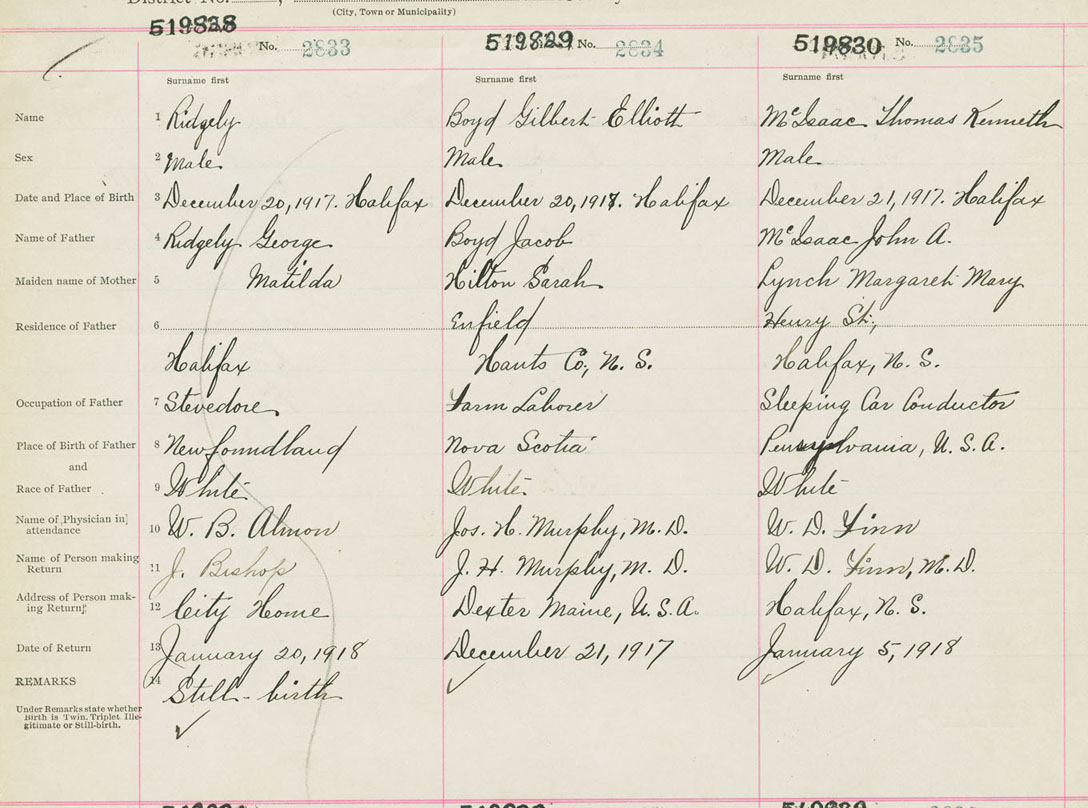 District No.
(City, Town or Municipality)
519828 No. 2833 519829 No. 2834 519830 No. 2835
Surname first Surname first Surname first
Name 1 Ridgely Boyd Gilbert Elliott McIsaac Thomas Kenneth
Sex 2 Male Male Male
Date and Place of Birth 3 December 20, 1917. Halifax December 20, 1917. Halifax December 21, 1917. Halifax
Name of Father 4 Ridgely George Boyd Jacob McIsaac John A.
Maiden name of Mother 5 Matilda Hilton Sarah Lynch Margaret Mary
Residence of Father 6 Enfield Henry St.,
Halifax Hants Co., N. S. Halifax, N. S.
Occupation of Father 7 Stevedore Farm Laborer Sleeping Car Conductor
Place of Birth of Father 8 Newfoundland Nova Scotia Pennsylvania, U. S. A.
and
Race of Father 9 White White White
Name of Physician in attendance 10 W. B. Almon Jos. H. Murphy, M. D. W. D. Finn
Name of Person making Return 11 J. Bishop J. H. Murphy, M. D. W. D. Finn, M. D.
Address of Person making Return 12 City Home Dexter Maine, U. S. A. Halifax, N. S.
Date of Return 13 January 20, 1918 December 21, 1917 January 5, 1918
REMARKS 14 Still-birth
Under Remarks state whether
Birth is Twin, Triplet, Ille-
gitimate or Still-birth.